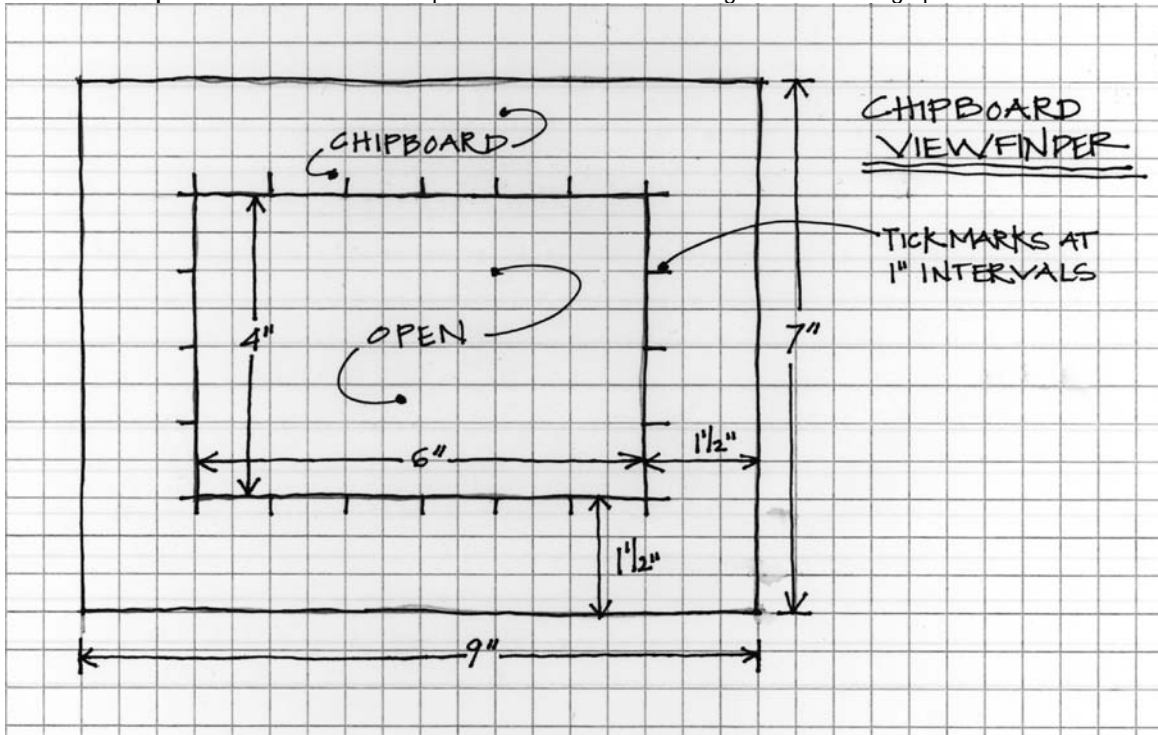 CHIPBOARD
VIEWFINDER
CHIPBOARD
TICK MARKS AT
1" INTERVALS
4"
OPEN
7"
6"
1 1/2"
1 1/2"
9"